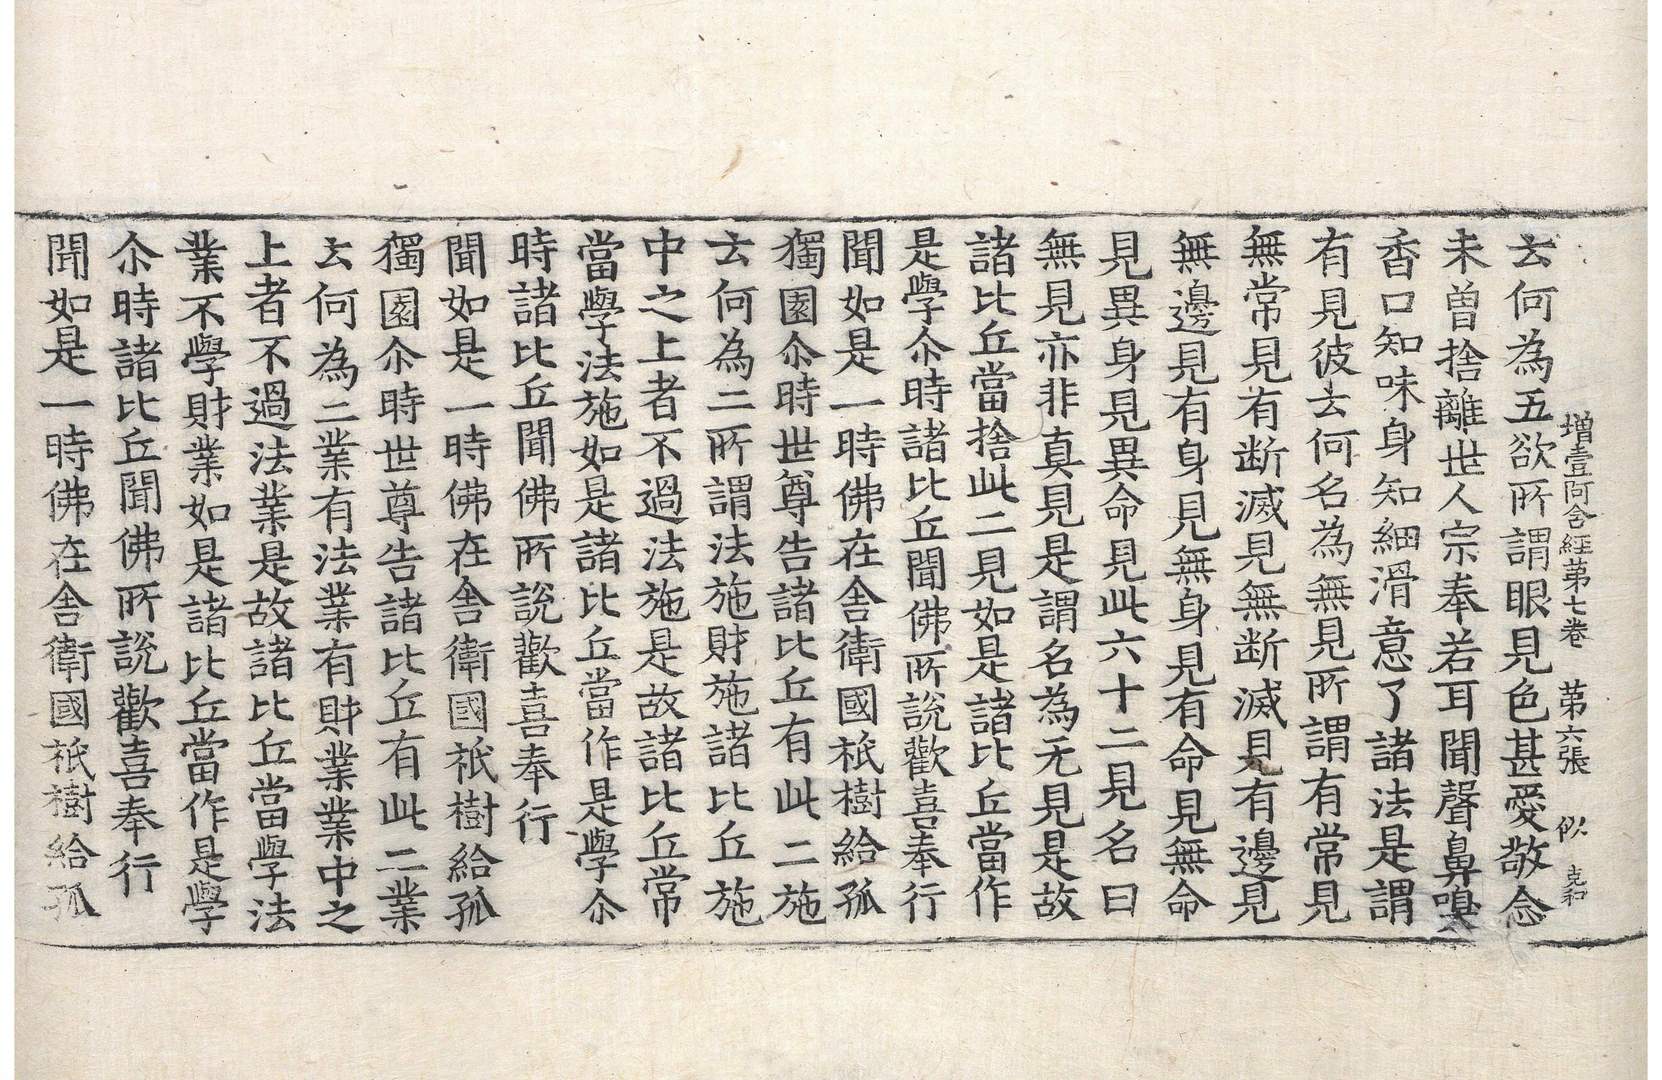 増壹阿含經苐七卷　苐六張　似　克和
云何為五欲所謂眼見色甚愛敬念
未曽捨離世人宗奉若耳聞聲鼻嗅
香口知味身知細滑意了諸法是謂
有見彼云何名為無見所謂有常見
無常見有断滅見無断滅見有邊見
無邊見有身見無身見有命見無命
見異身見異命見此六十二見名曰
無見亦非真見是謂名為无見是故
諸比丘當捨此二見如是諸比丘當作
是學尒時諸比丘聞佛所說歡喜奉行
聞如是一時佛在舎衛國祇樹給孤
獨園尒時世尊告諸比丘有此二施
云何為二所謂法施財施諸比丘施
中之上者不過法施是故諸比丘常
當學法施如是諸比丘當作是學尒
時諸比丘聞佛所說歡喜奉行
聞如是一時佛在舎衛國祇樹給孤
獨園尒時世尊告諸比丘有此二業
云何為二業有法業有財業業中之
上者不過法業是故諸比丘當學法
業不學財業如是諸比丘當作是學
尒時諸比丘聞佛所說歡喜奉行
聞如是一時佛在舎衛國祇樹給孤